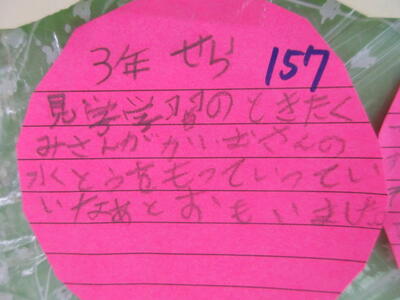 3年 せら 157
見学学習のときたく
みさんががいむさんの
水とうをもっていってい
いなぁとおもいました